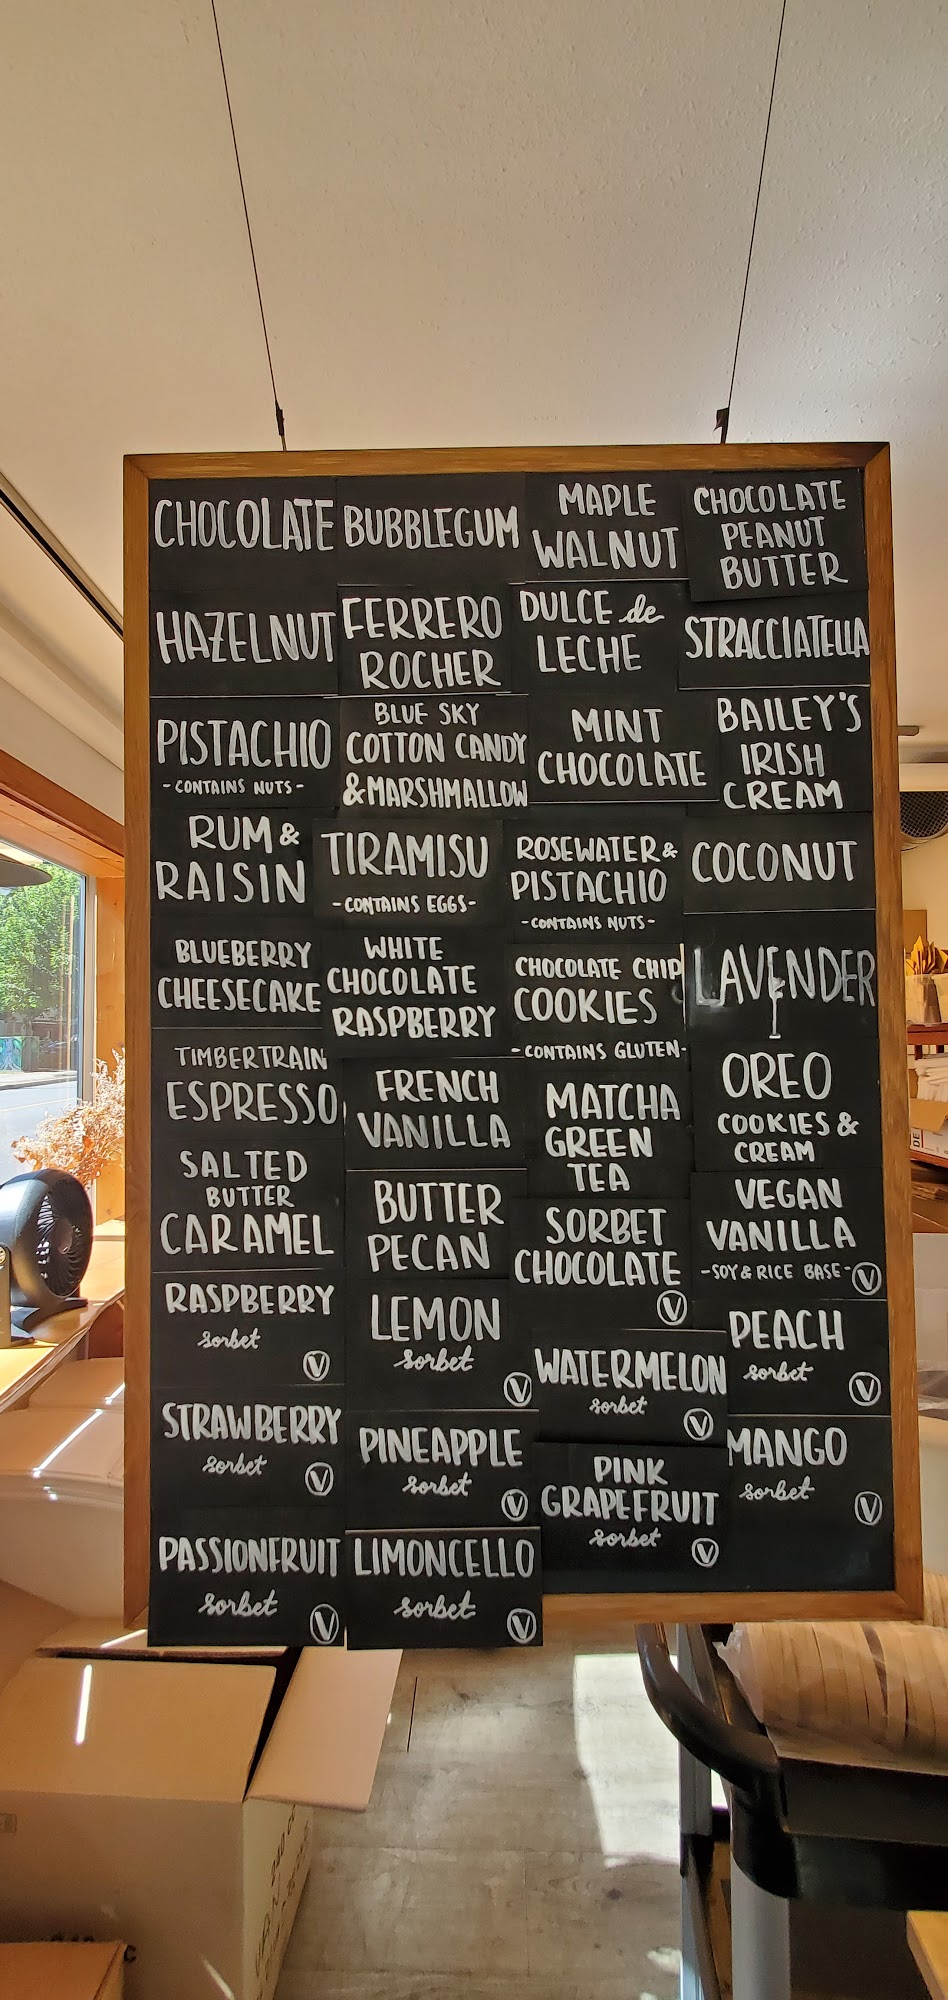 CHOCOLATE
HAZELNUT
PISTACHIO
- CONTAINS NUTS -
RUM &
RAISIN
BLUEBERRY
CHEESECAKE
TIMBERTRAIN
ESPRESSO
SALTED
BUTTER
CARAMEL
RASPBERRY
sorbet
V
STRAWBERRY
sorbet
V
PASSIONFRUIT
sorbet
V
BUBBLEGUM
FERRERO
ROCHER
BLUE SKY
COTTON CANDY
& MARSHMALLOW
TIRAMISU
- CONTAINS EGGS -
WHITE
CHOCOLATE
RASPBERRY
FRENCH
VANILLA
BUTTER
PECAN
LEMON
sorbet
V
PINEAPPLE
sorbet
V
LIMONCELLO
sorbet
V
MAPLE
WALNUT
DULCE de
LECHE
MINT
CHOCOLATE
ROSEWATER &
PISTACHIO
- CONTAINS NUTS -
CHOCOLATE CHIP
COOKIES
- CONTAINS GLUTEN -
MATCHA
GREEN
TEA
SORBET
CHOCOLATE
V
WATERMELON
sorbet
V
PINK
GRAPEFRUIT
sorbet
V
CHOCOLATE
PEANUT
BUTTER
STRACCIATELLA
BAILEY'S
IRISH
CREAM
COCONUT
LAVENDER
OREO
COOKIES &
CREAM
VEGAN
VANILLA
- SOY & RICE BASE - V
PEACH
sorbet
V
MANGO
sorbet
V